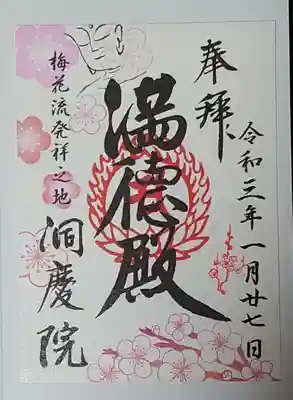 奉拜
令和三年一月廿七日
満德殿
梅花流発祥之地
洞慶院